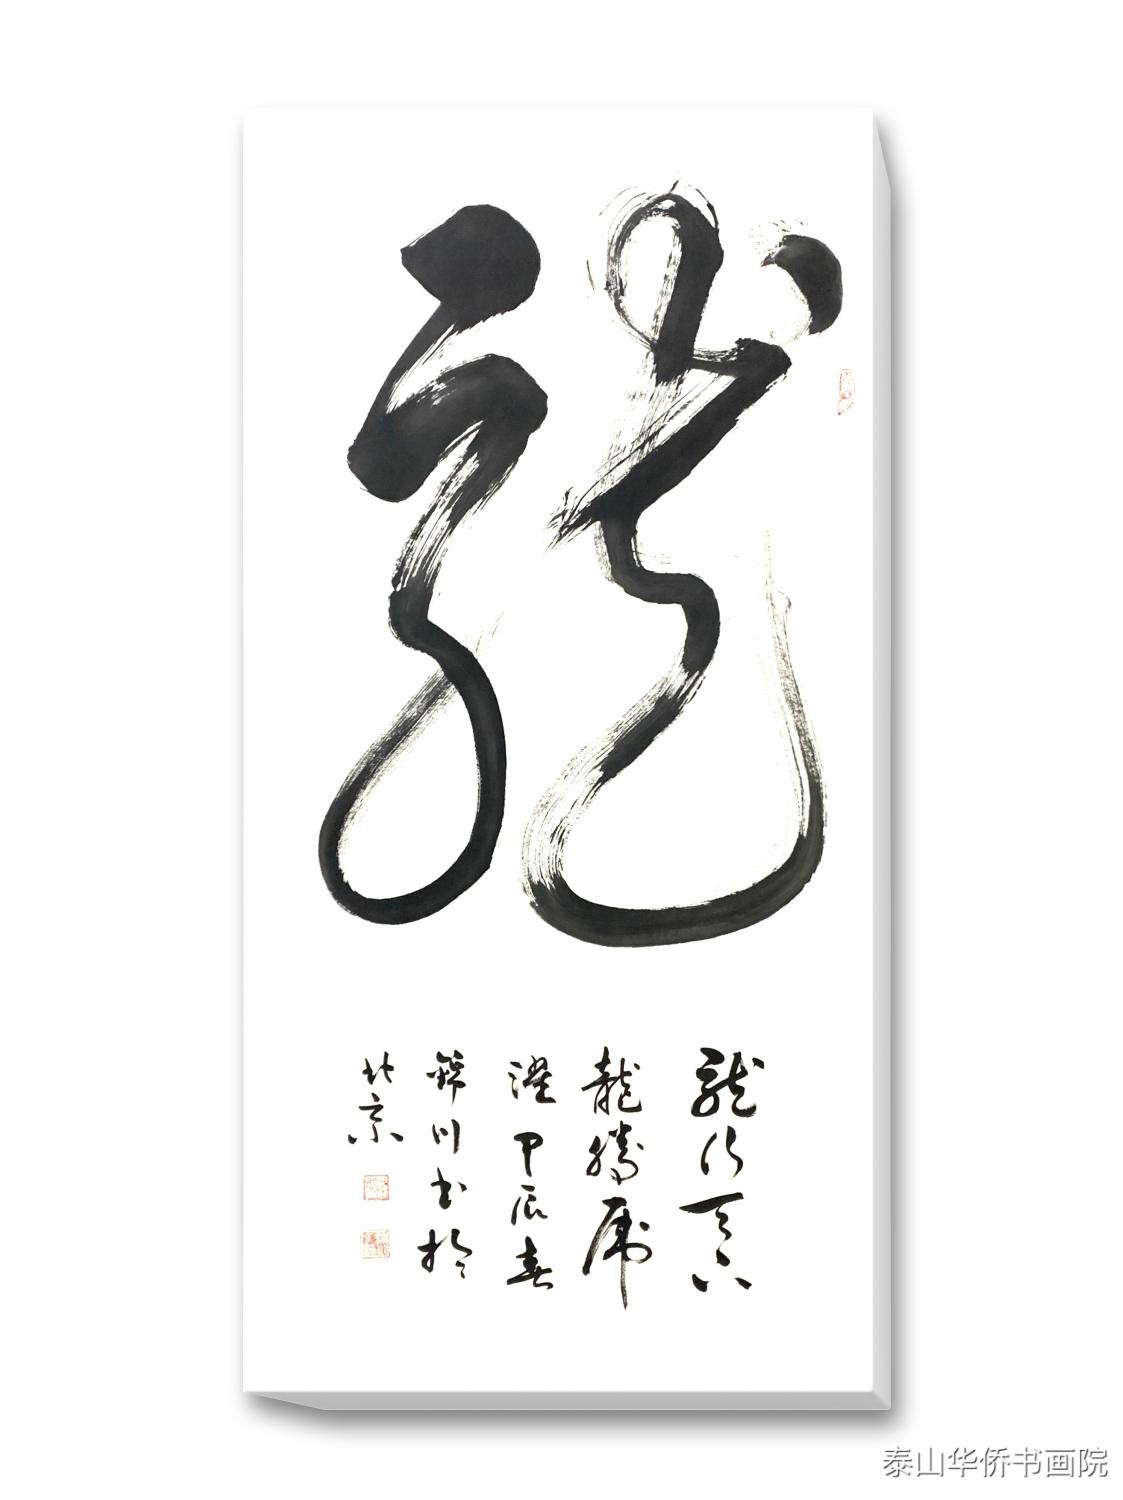 龍
龍行天下
龍騰虎
躍甲辰春
錦川書於
北京
泰山华侨书画院